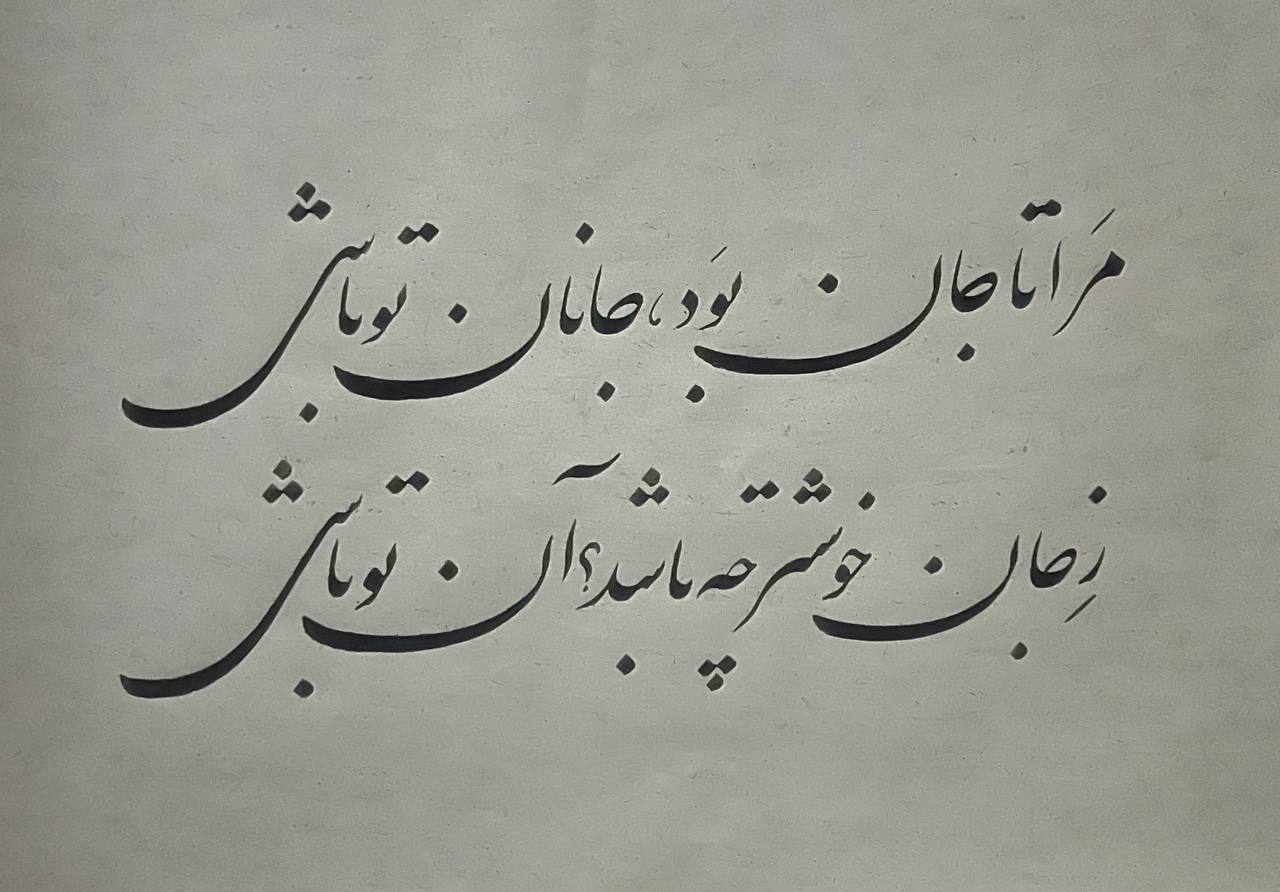 مَرا تا جان بوَد، جانان تو باشی
زِ جان خوشتر چه باشد؟ آن تو باشی